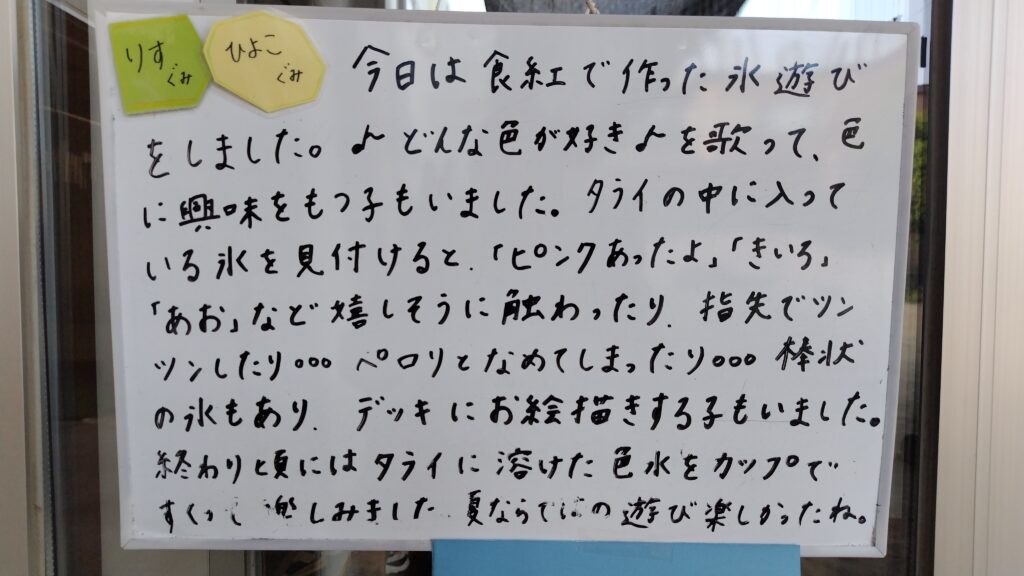 りすぐみ
ひよこぐみ
今日は食紅で作った氷遊び
をしました。♪どんな色が好き♪を歌って、色
に興味をもつ子もいました。タライの中に入って
いる氷を見付けると、「ピンクあったよ」「きいろ」
「あお」など嬉しそうに触わったり、指先でツン
ツンしたり○○○ペロリとなめてしまったり○○○棒状
の氷もあり、デッキにお絵描きする子もいました。
終わり頃にはタライに溶けた色水をカップで
すくって楽しみました 夏ならではの遊び楽しかったね。